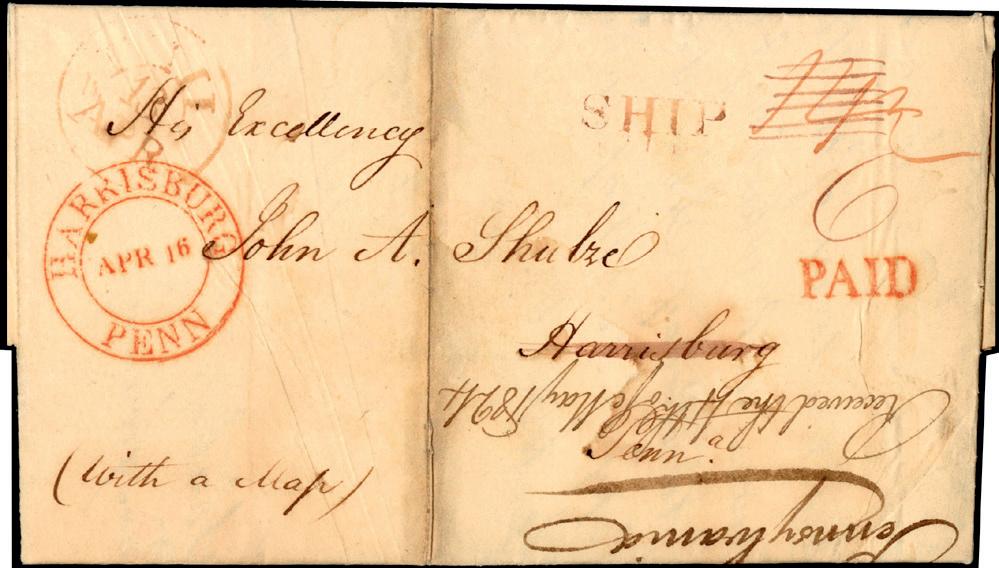 SHIP
His Excellency
HARRISBURG
APR 16
PENN
John A. Shulze
6
PAID
Harrisburg
Penn.a
(With a Map)
Pennsylvania
Received the 4th of May 1824